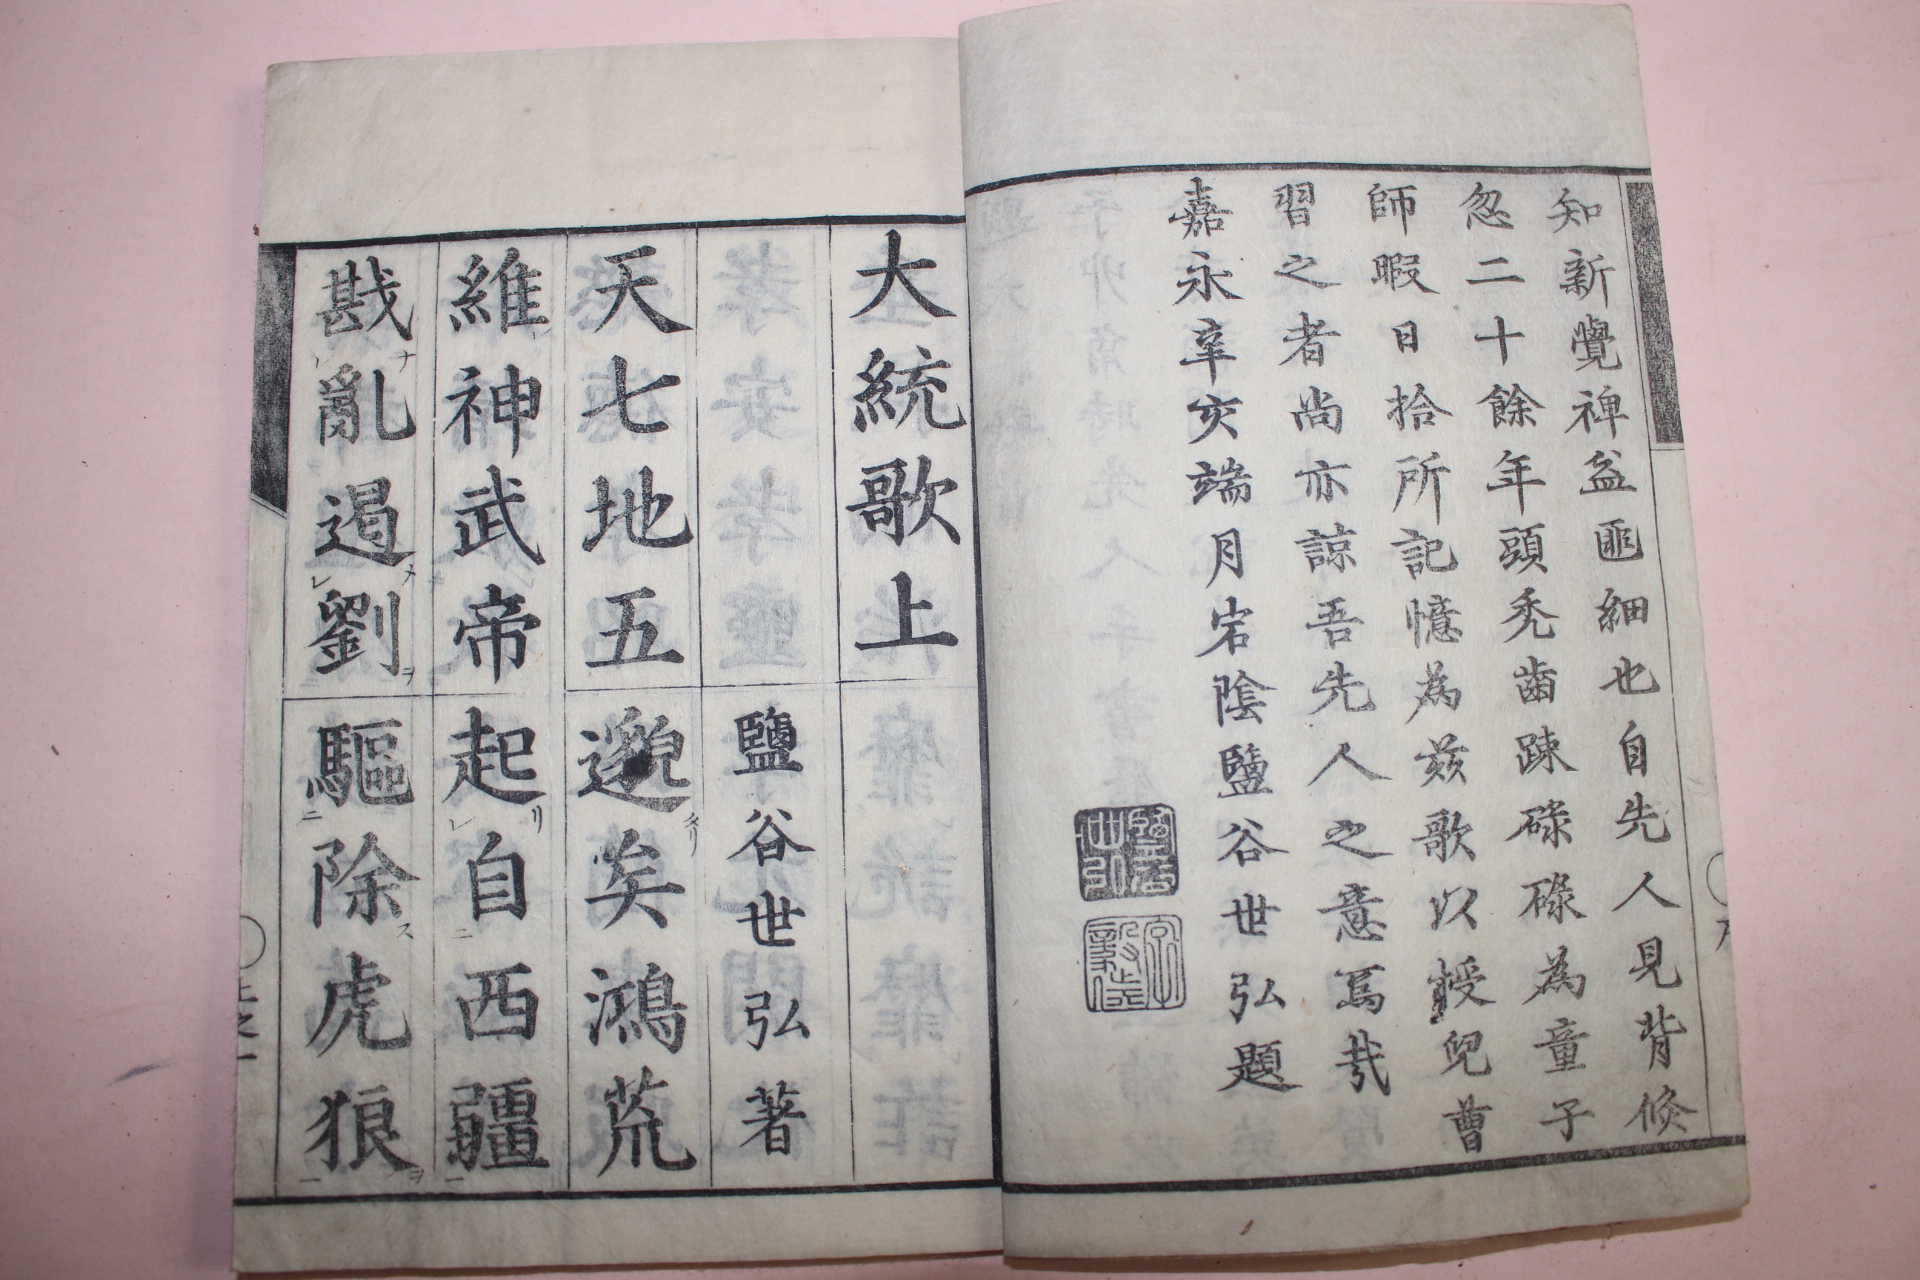 知新覺裨益匪細也自先人見背倐
忽二十餘年頭禿齒踈碌碌為童子
師暇日拾所記憶為茲歌以授兒曹
習之者尚亦諒吾先人之意焉哉
嘉永辛亥端月宕陰鹽谷世弘題
序
大統歌上
鹽谷世弘著
天七地五邈矣鴻荒
維神武帝起自西疆
戡亂遏劉驅除虎狼
上之一